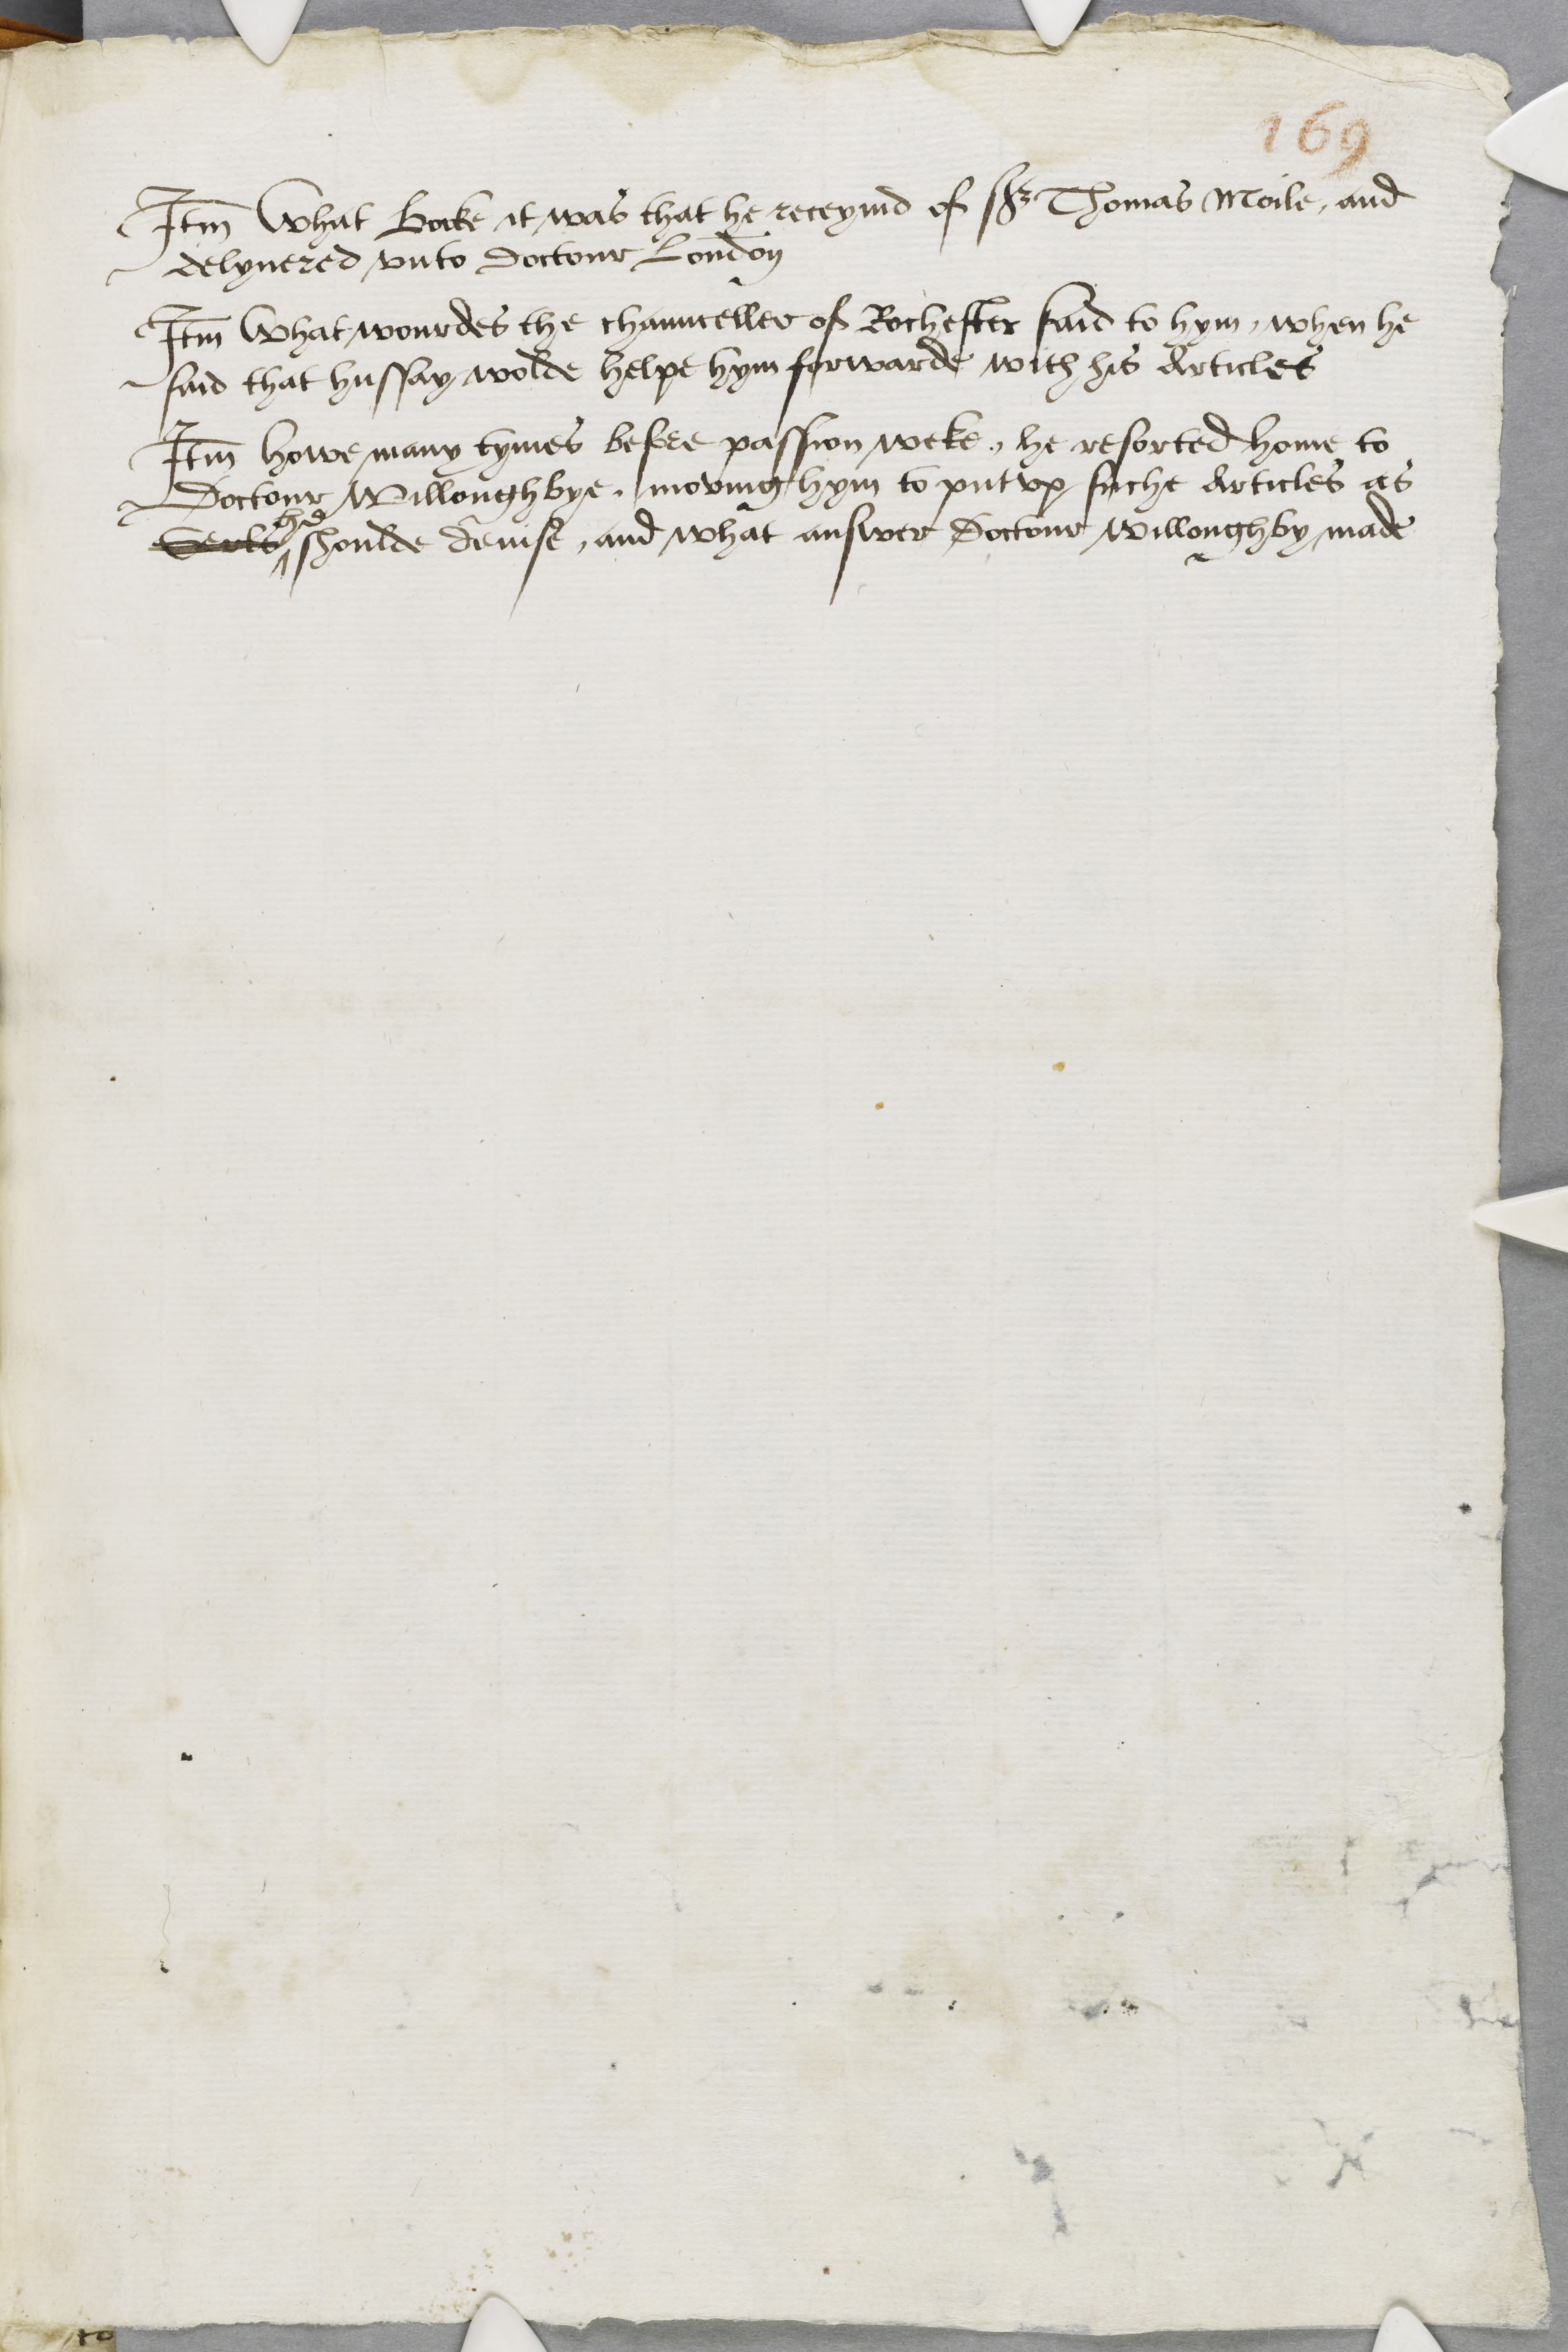 169
Itm What Booke it was that he receyuid of Sr Thomas Moile, and
delyuered vnto Doctour London
Itm What wourdes the chaunceller of Rochester said to hym, when he
said that hussay wolde helpe hym forwarde with his Articles
Itm howe many tymes before passion weke, he resorted home to
Doctour Willoughbye, moving hym to put vp suche Articles as
he
shoulde deuise, and what answer Doctour Willoughby made